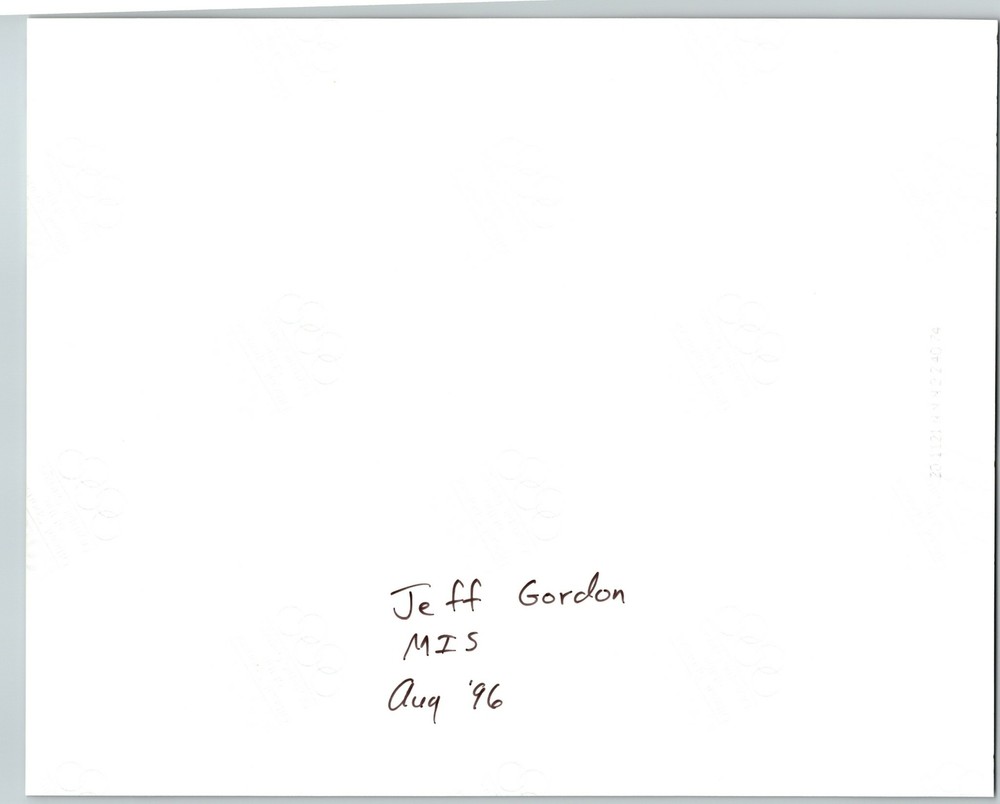 Jeff Gordon
MIS
Aug '96